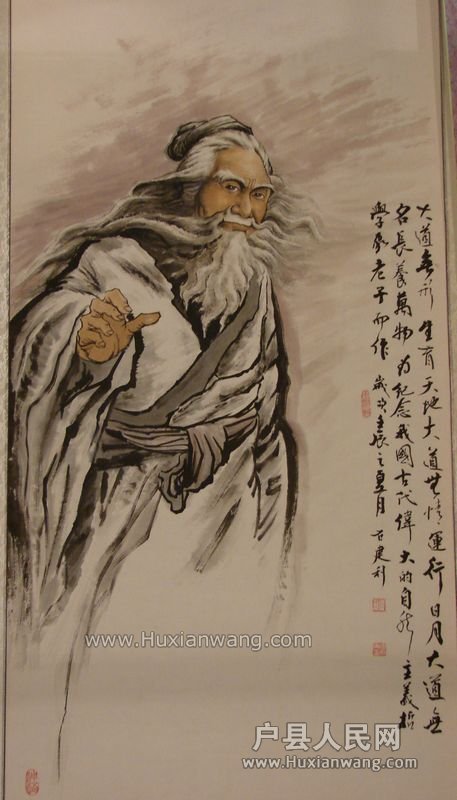 大道无形生育天地大道無情運行日月大道無
名長養萬物为紀念我國古代偉大的自然主義哲
學家老子而作 歲次壬辰之夏月 建利
www.Huxianwang.com
户县人民网
www.Huxianwang.com